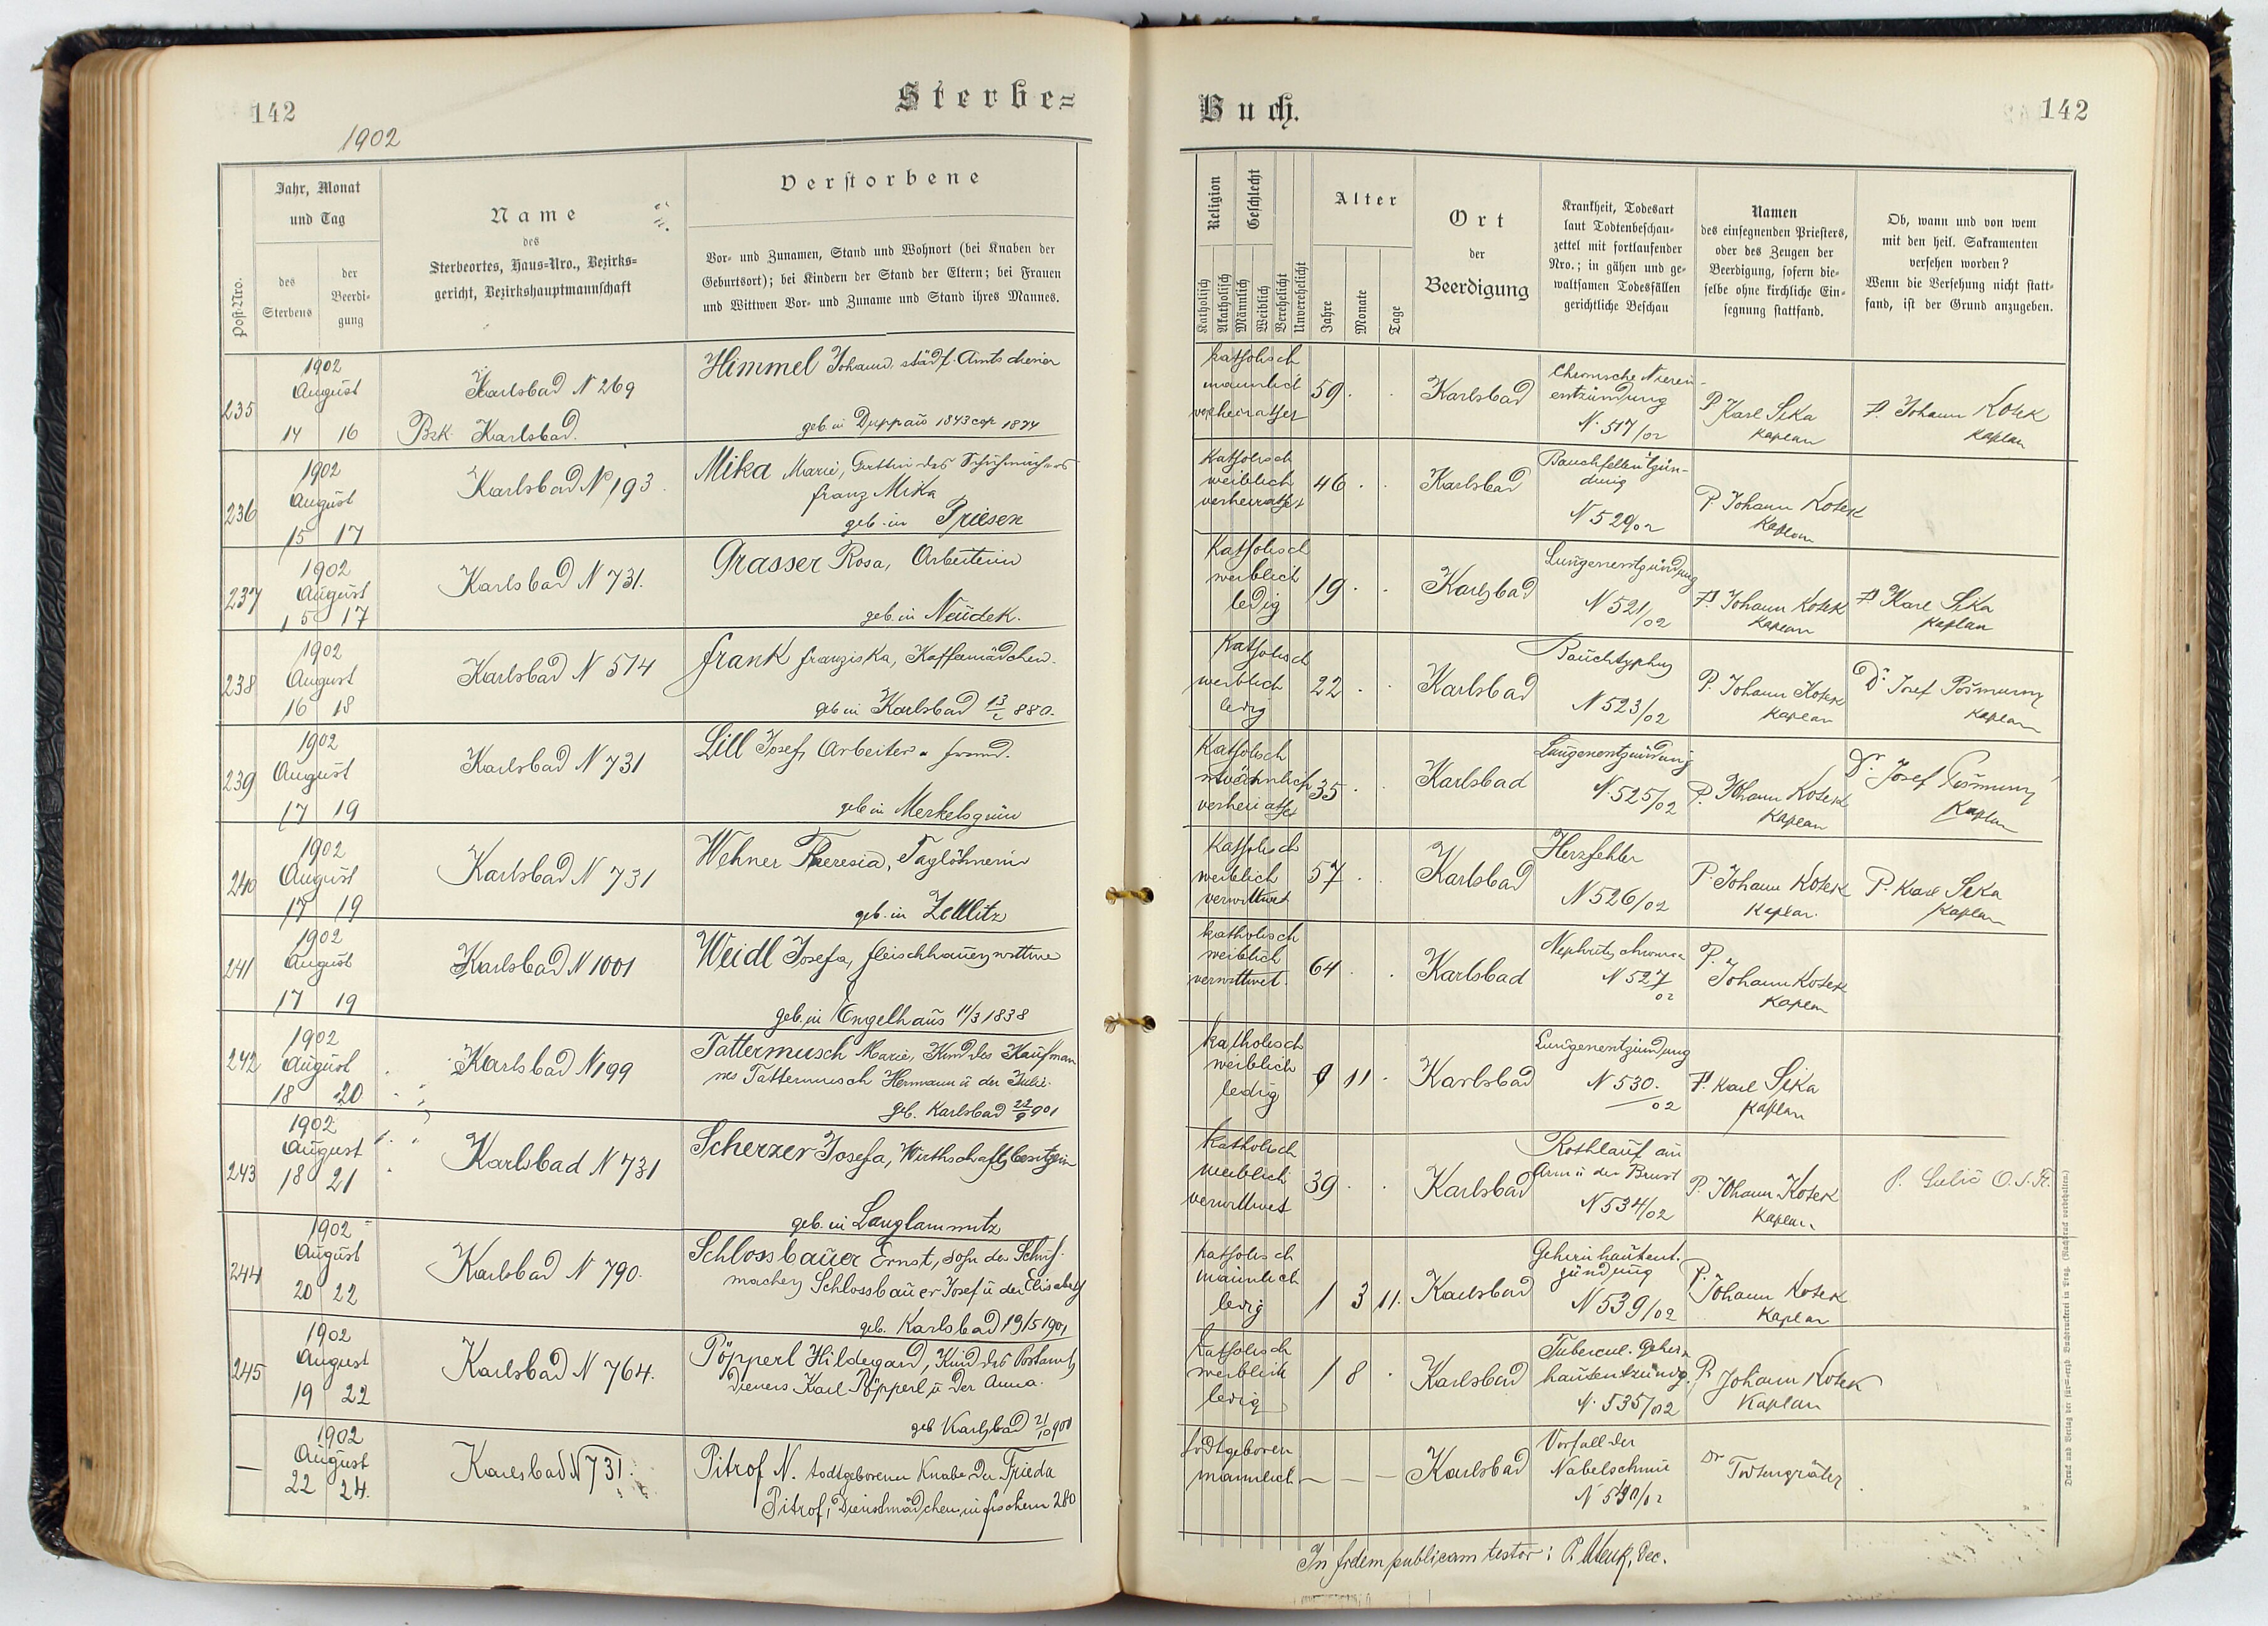 142
Sterbe=
1902
Post-Nro.
Jahr, Monat
und Tag
des
Sterbens
der
Beerdi-
gung
Name
des
Sterbeortes, Haus-Nro., Bezirks-
gericht, Bezirkshauptmannschaft
Verstorbene
Vor- und Zunamen, Stand und Wohnort (bei Knaben der
Geburtsort); bei Kindern der Stand der Eltern; bei Frauen
und Wittwen Vor- und Zuname und Stand ihres Mannes.
235
1902
August
14 16
Karlsbad N 269
Bzk. Karlsbad.
Himmel Johann, städt. Amtsdiener
geb. in Duppau 1843 cop 1874
236
1902
August
15 17
Karlsbad N 193
Mika Marie, Gattin des Schuhmachers
Franz Mika
geb. in Priesen
237
1902
August
15 17
Karlsbad N 731.
Grasser Rosa, Arbeiterin
geb. in Neudek.
238
1902
August
16 18
Karlsbad N 514
Frank Franziska, Kaffeemädchen.
geb in Karlsbad 880.
239
1902
August
17 19
Karlsbad N 731
Lill Josef, Arbeiter
geb in Merkelsgrün
240
1902
August
17 19
Karlsbad N 731
Wehner Theresia, Taglöhnerin
geb. in Zettlitz
241
1902
August
17 19
Karlsbad N 1001
Weidl Josefa, Fleischhauerswittwe
geb. in Engelhaus 11/3 1838
242
1902
August
18 20
Karlsbad N 199
Tattermusch Marie, Kind des Kaufman
nes Tattermusch Hermann u der Julie.
geb. Karlsbad 22/9 901
243
1902
August
18 21
Karlsbad N 731
Scherzer Josefa, Wirthschaftsbesitzerin
geb. in Langlammitz
244
1902
August
20 22
Karlsbad N 790.
Schlossbauer Ernst, Sohn des Schuh-
machers Schlossbauer Josef u der Elisabeth
geb. Karlsbad 19/5 1901
245
1902
August
19 22
Karlsbad N 764.
Pöpperl Hildegard, Kind des Postamts
dieners Karl Pöpperl u der Anna.
geb Karlsbad 21/10 900
—
1902
August
22 24.
Karlsbad N 731.
Pitrof N. todtgeborener Knabe der Frieda
Pitrof, Dienstmädchen, in Fischern 280
Buch.
142
Religion
Geschlecht
Katholisch
Akatholisch
Männlich
Weiblich
Verehelicht
Unverehelicht
Alter
Jahre
Monate
Tage
Ort
der
Beerdigung
Krankheit, Todesart
laut Todtenbeschau-
zettel mit fortlaufender
Nro.; in gähen und ge-
waltsamen Todesfällen
gerichtliche Beschau
Namen
des einsegnenden Priesters,
oder des Zeugen der
Beerdigung, sofern die-
selbe ohne kirchliche Ein-
segnung stattfand.
Ob, wann und von wem
mit den heil. Sakramenten
versehen worden?
Wenn die Versehung nicht statt-
fand, ist der Grund anzugeben.
katholisch
männlich
verheirathet
59
Karlsbad
Chronische Nieren-
entzündung
N. 517/02
P Karl Sika
Kaplan
P. Johann Kotek
Kaplan
katholisch
weiblich
verheirathet
46
Karlsbad
Bauchfellentzün-
dung
N 520/02
P Johann Kotek
Kaplan
Katholisch
weiblich
ledig
19
Karlsbad
Lungenentzündung
N 521/02
P. Johann Kotek
Kaplan
P Karl Sika
Kaplan
Katholisch
weiblich
ledig
22
Karlsbad
Bauchtyphus
N 523/02
P. Johann Kotek
Kaplan
Dr Josef
Kaplan
Katholisch
männlich
verheirathet
35
Karlsbad
Lungenentzündung
N. 525/02
P. Johann Kotek
Kaplan
Dr. Josef
Kaplan
Katholisch
weiblich
verwittwet
57
Karlsbad
Herzfehler
N 526/02
P. Johann Kotek
Kaplan.
P. Karl Sika
Kaplan
katholisch
weiblich
verwittwet
64
Karlsbad
Nephritis chronica
N 527/02
P.
Johann Kotek
Kaplan
katholisch
weiblich
ledig
11
Karlsbad
Lungenentzündung
N 530./02
P. Karl Sika
Kaplan
Katholisch
weiblich
verwittwet
39
Karlsbad
Rothlauf am
Arm u der Brust
N 534/02
P. Johann Kotek
Kaplan
P. O.S.Fr.
katholisch
männlich
ledig
1 3 11.
Karlsbad
Gehirnhautent.
zündung
N 539/02
P.
Johann Kotek
Kaplan
katholisch
weiblich
ledig
1 8
Karlsbad
Tubercul. Gehirn
hautentzündg.
N. 535/02
P Johann Kotek
Kaplan
todtgeboren
männlich
— — —
Karlsbad
Vorfall der
Nabelschnur
N 540/02
Der Todtengräber
In fidem publicam testor: Dec.